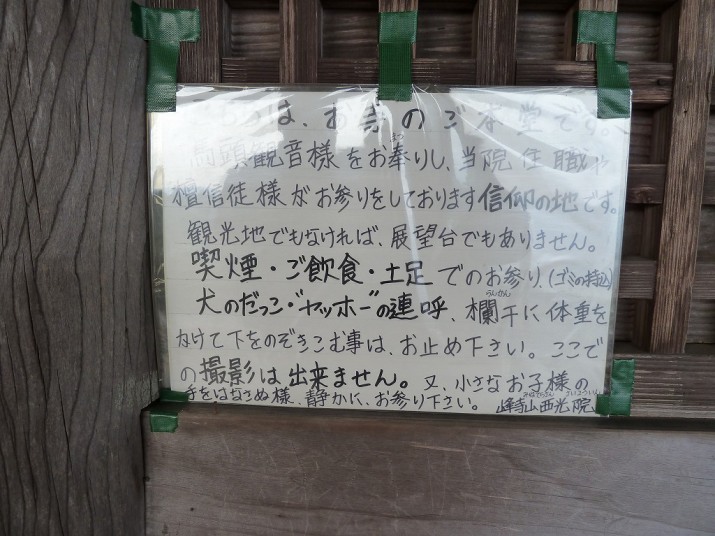 ここは、お寺のご本堂です。
馬頭観音様をお奉りし、当院住職や
檀信徒様がお参りをしております信仰の地です。
観光地でもなければ、展望台でもありません。
喫煙・ご飲食・土足でのお参り、(ゴミの持込)
犬のだっこ・"ヤッホー"の連呼、欄干に体重を
かけて下をのぞきこむ事は、お止め下さい。ここで
の撮影は出来ません。又、小さなお子様の
手をはなさぬ様、静かに、お参り下さい。 峰寺山西光院